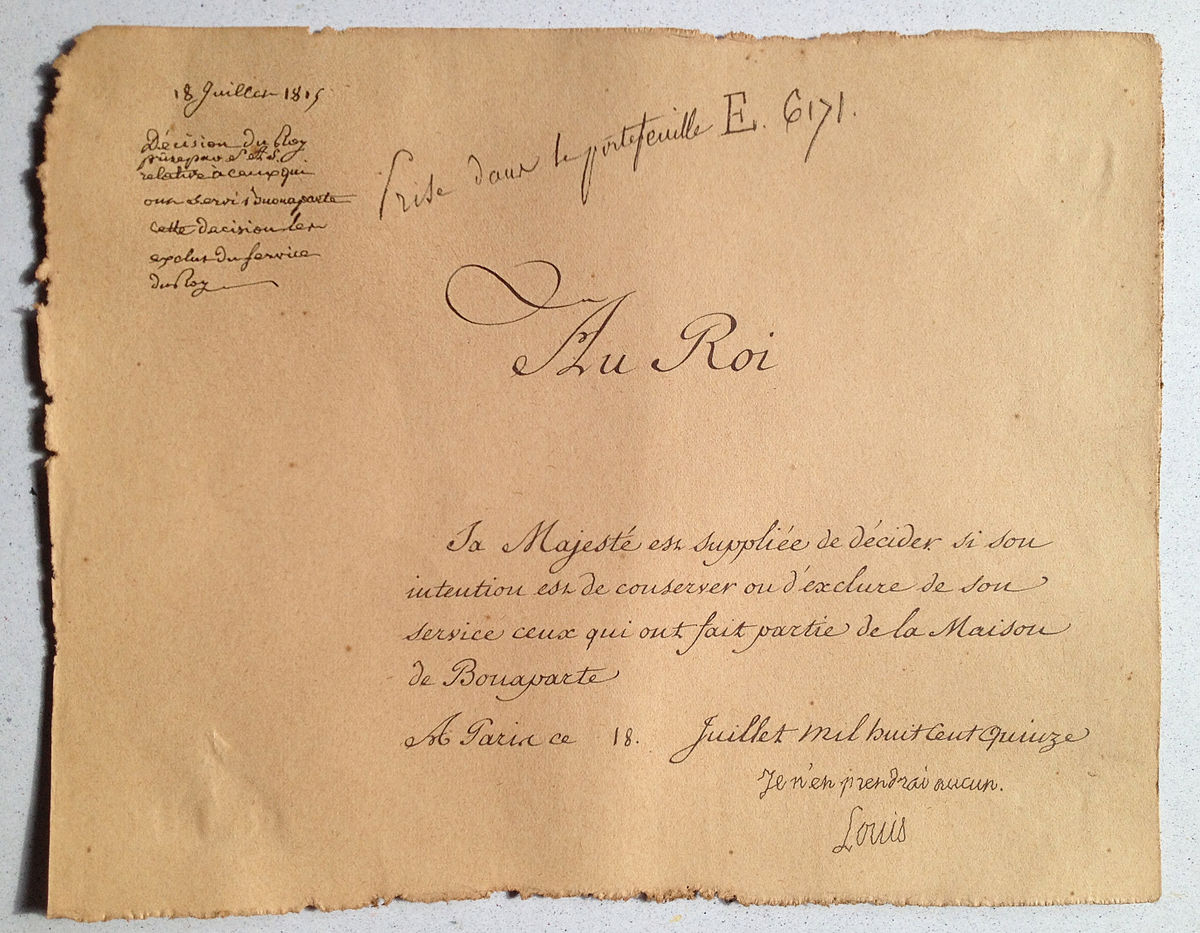 18 Juillet 1815
Décision du Roy
relative à ceux qui
ont servi Buonaparte
cette decision les
exclut du service
du Roy
Prise dans le portefeuille E. 6171.
Au Roi
Sa Majesté est suppliée de décider si son
intention est de conserver ou d'exclure de son
service ceux qui ont fait partie de la Maison
de Bonaparte
A Paris ce 18. Juillet mil huit Cent Quinze
Je n'en prendrai aucun.
Louis